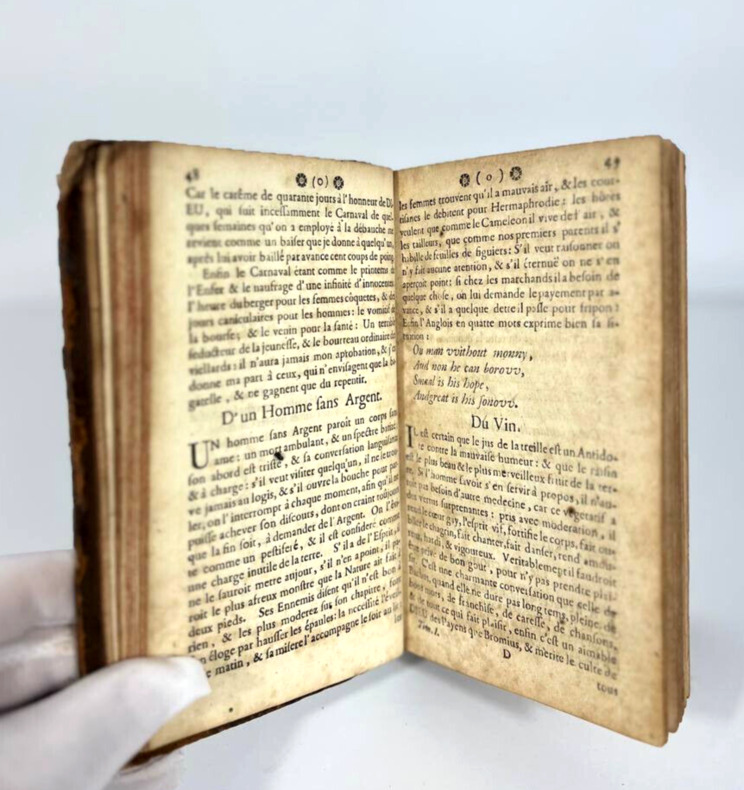 48
(o)
Car le carême de quarante jours à l'honneur de DI-
EU, qui suit incessamment le Carnaval de quel-
ques semaines qu'on a employé à la débauche ne
revient comme un baiser que je donne à quelqu'un,
après lui avoir baillé par avance cent coups de poing.
Enfin le Carnaval étant comme le printems de
l'Enfer & le naufrage d'une infinité d'innocens,
l'heure du berger pour les femmes côquetes, & des
jours caniculaires pour les hommes: le vomitif de
la bourse, & le venin pour la santé: Un terrible
seducteur de la jeunesse, & le bourreau ordinaire des
vieillards: il n'aura jamais mon aprobation, & j'en
donne ma part à ceux, qui n'envisagent que la ba-
gatelle, & ne gagnent que du repentir.
D'un Homme sans Argent.
UN homme sans Argent paroit un corps sans
ame: un mort ambulant, & un spectre
son abord est triste, & sa conversation languissante
& à charge: s'il veut visiter quelqu'un, il ne le trou-
ve jamais au logis, & s'il ouvre la bouche pour par-
ler, on l'interrompt à chaque moment, afin qu'il ne
puisse achever son discours, dont on craint toujours
que la fin soit, à demander de l'Argent. On l'
te comme un pestiferé, & il est consideré comme
une charge inutile de la terre. S'il a de l'Esprit,
ne le sauroit metre aujour, s'il n'en a point, il pa-
roit le plus afreux monstre que la Nature ait fait à
deux pieds. Ses Ennemis disent qu'il n'est bon à
rien, & les plus moderez sur son chapitre,
éloge par hausser les épaules: la necessité l'éveil
le matin, & sa misere l'accompagne le soir au lit
49
( o )
les femmes trouvent qu'il a mauvais air, & les cour-
tisanes le debitent pour Hermaphrodie: les hôtes
veulent que comme le Cameleon il vive de l'air, &
les tailleurs, que comme nos premiers parents il s'
habille de feuilles de figuiers: S'il veut raisonner on
n'y fait aucune atention, & s'il éternuë on ne s'en
aperçoit point: si chez les marchands il a besoin de
quelque chose, on lui demande le payement par a-
vance, & s'il a quelque dette il passe pour fripon:
Enfin l'Anglois en quatte mots exprime bien sa si-
tuation:
Ou man vvithout monny,
And non he can borovv,
Smaal is his hope,
And great is his sonovv.
Dú Vin.
IL est certain que le jus de la treille est un Antido-
te contre la mauvaise humeur: & que le raisin
est le plus beau & le plus merveilleux fruit de la ter-
re. Si l'homme savoit s'en servir à propos, il n'au-
roit pas besoin d'autre medecine, car ce vegetatif a
des vertus surprenantes: pris avec moderation, il
rend le cœur gay, l'esprit vif, fortifie le corps, fait ou-
blier le chagrin, fait chanter, fait danser, rend amou-
reux, hardi, & vigoureux. Veritablement il faudroit
être privé de bon goût, pour n'y pas prendre plai-
sir. C'est une charmante conversation que celle de
quand elle ne dure pas long tems, pleine de
bons mots, de franchise, de caresse, de chansons,
& de tout ce qui fait plaisir, enfin c'est un aimable
des Payens que Bromius, & merite le culte de
Tom. I.
D
tous